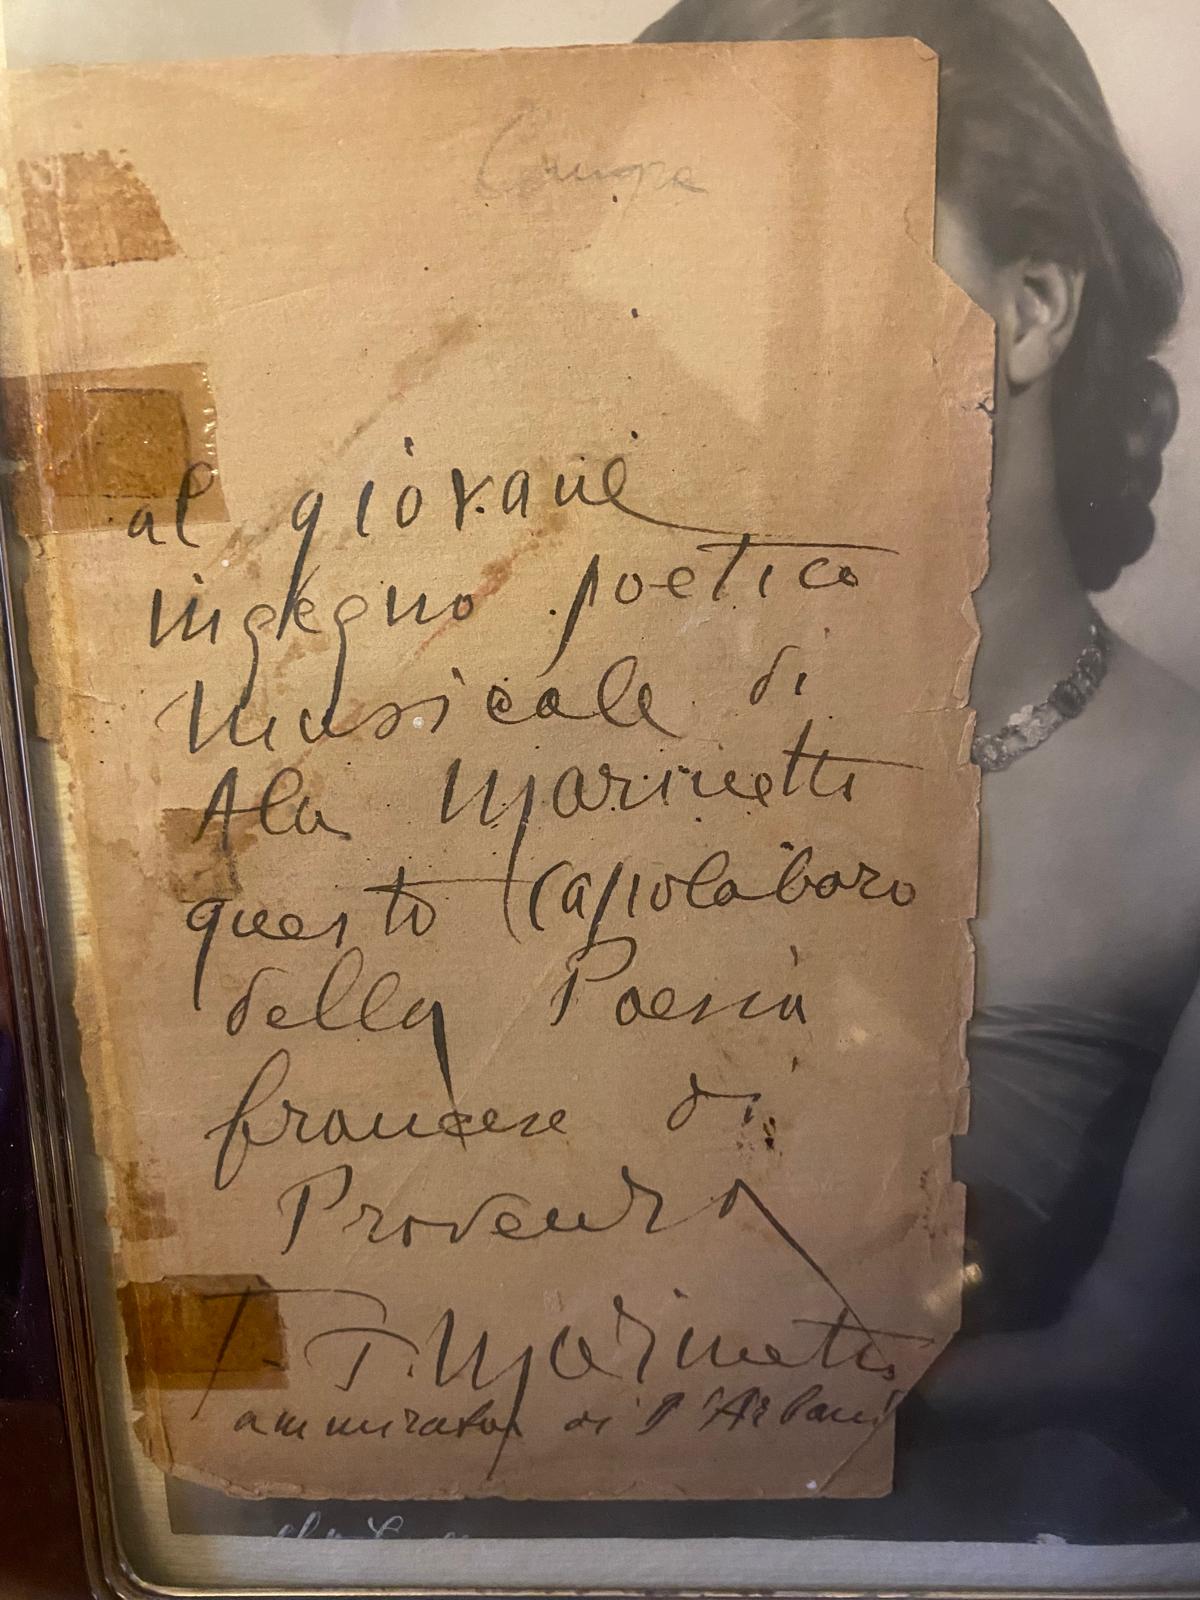 al giovane
ingegno poetico
musicale di
Ala Marinetti
questo capolavoro
della Poesia
francese di
Provenza
F. T. Marinetti
ammirator di